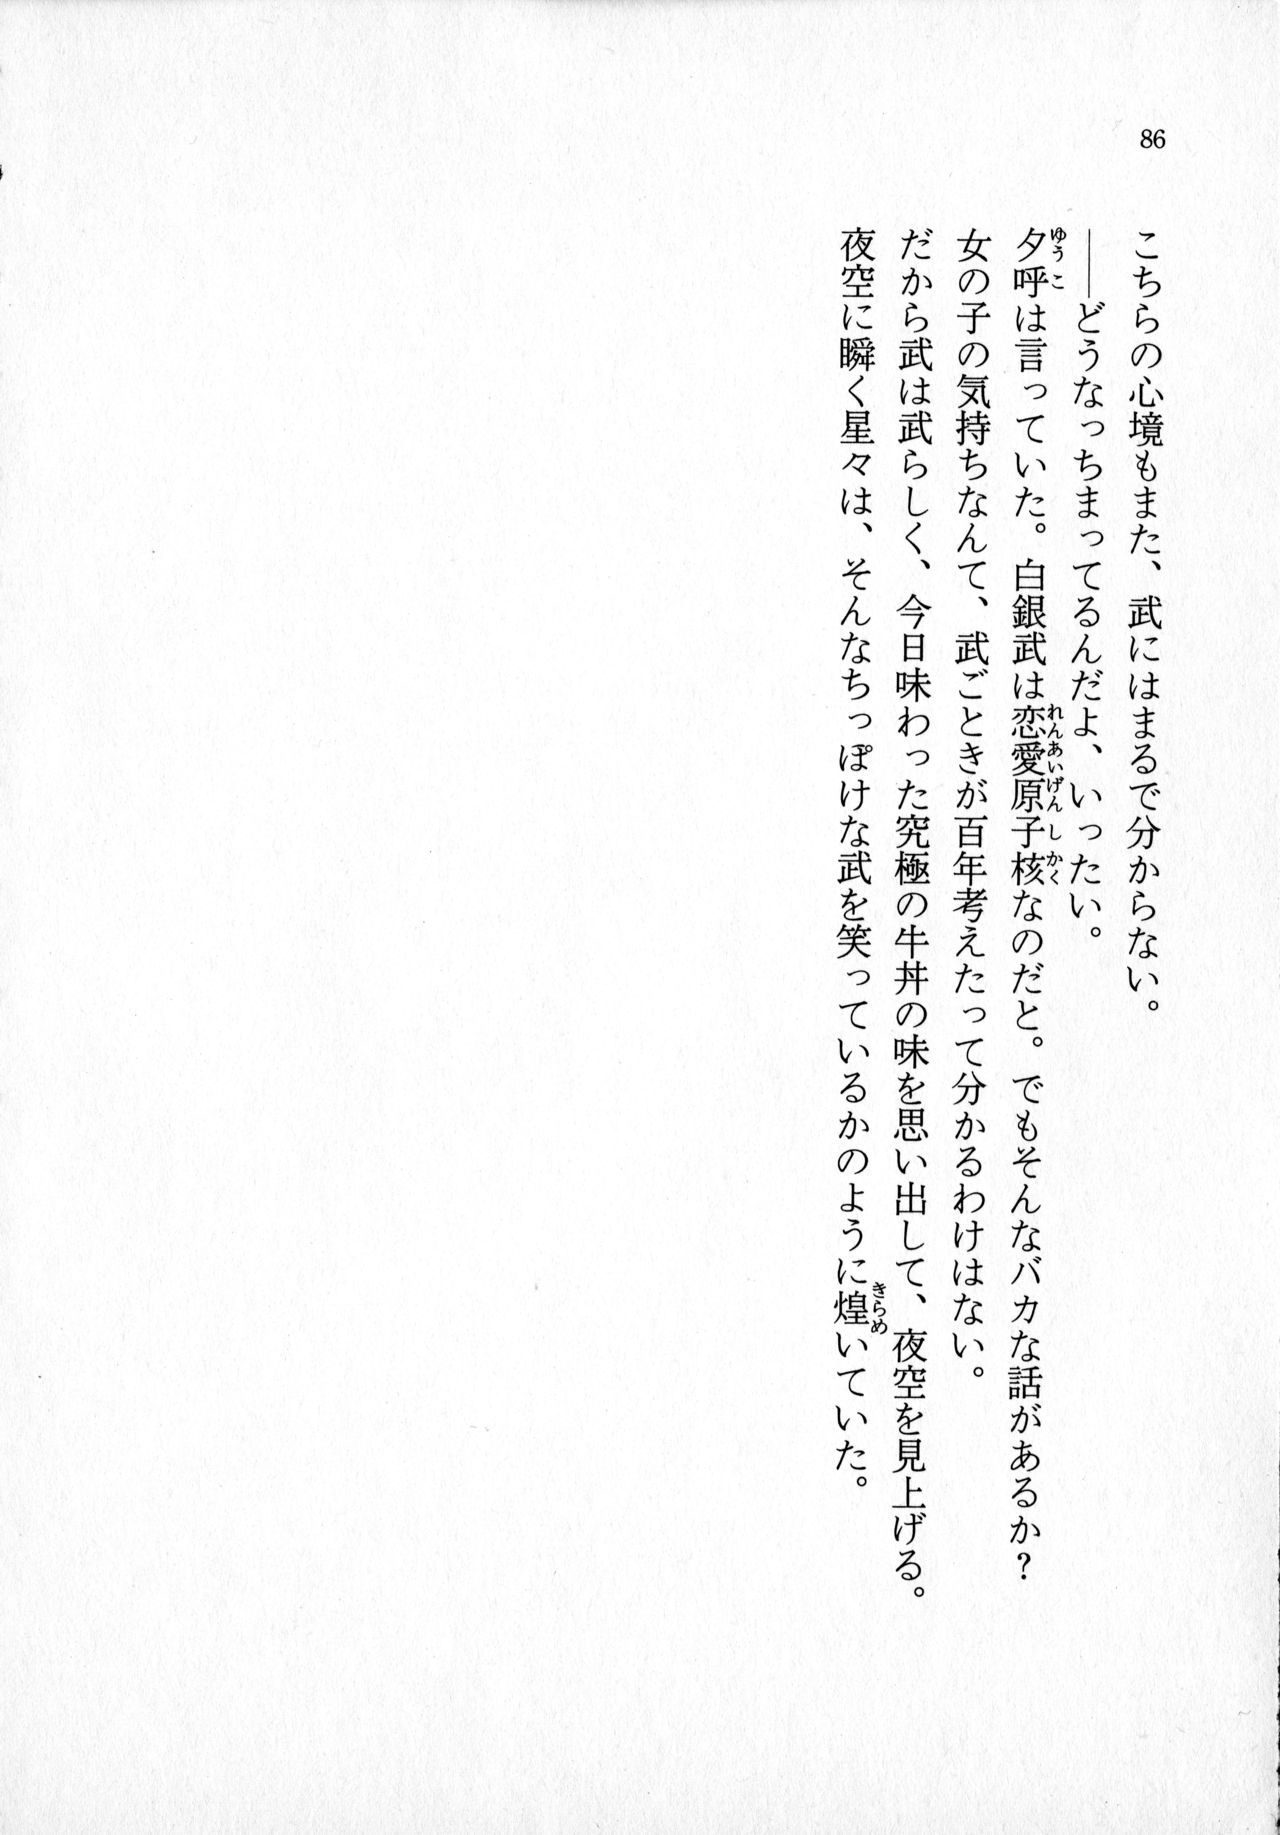 86
こちらの心境もまた、武にはまるで分からない。
――どうなっちまってるんだよ、いったい。
夕呼は言っていた。白銀武は恋愛原子核なのだと。でもそんなバカな話があるか？
女の子の気持ちなんて、武ごときが百年考えたって分かるわけはない。
だから武は武らしく、今日味わった究極の牛丼の味を思い出して、夜空を見上げる。
夜空に瞬く星々は、そんなちっぽけな武を笑っているかのように煌いていた。